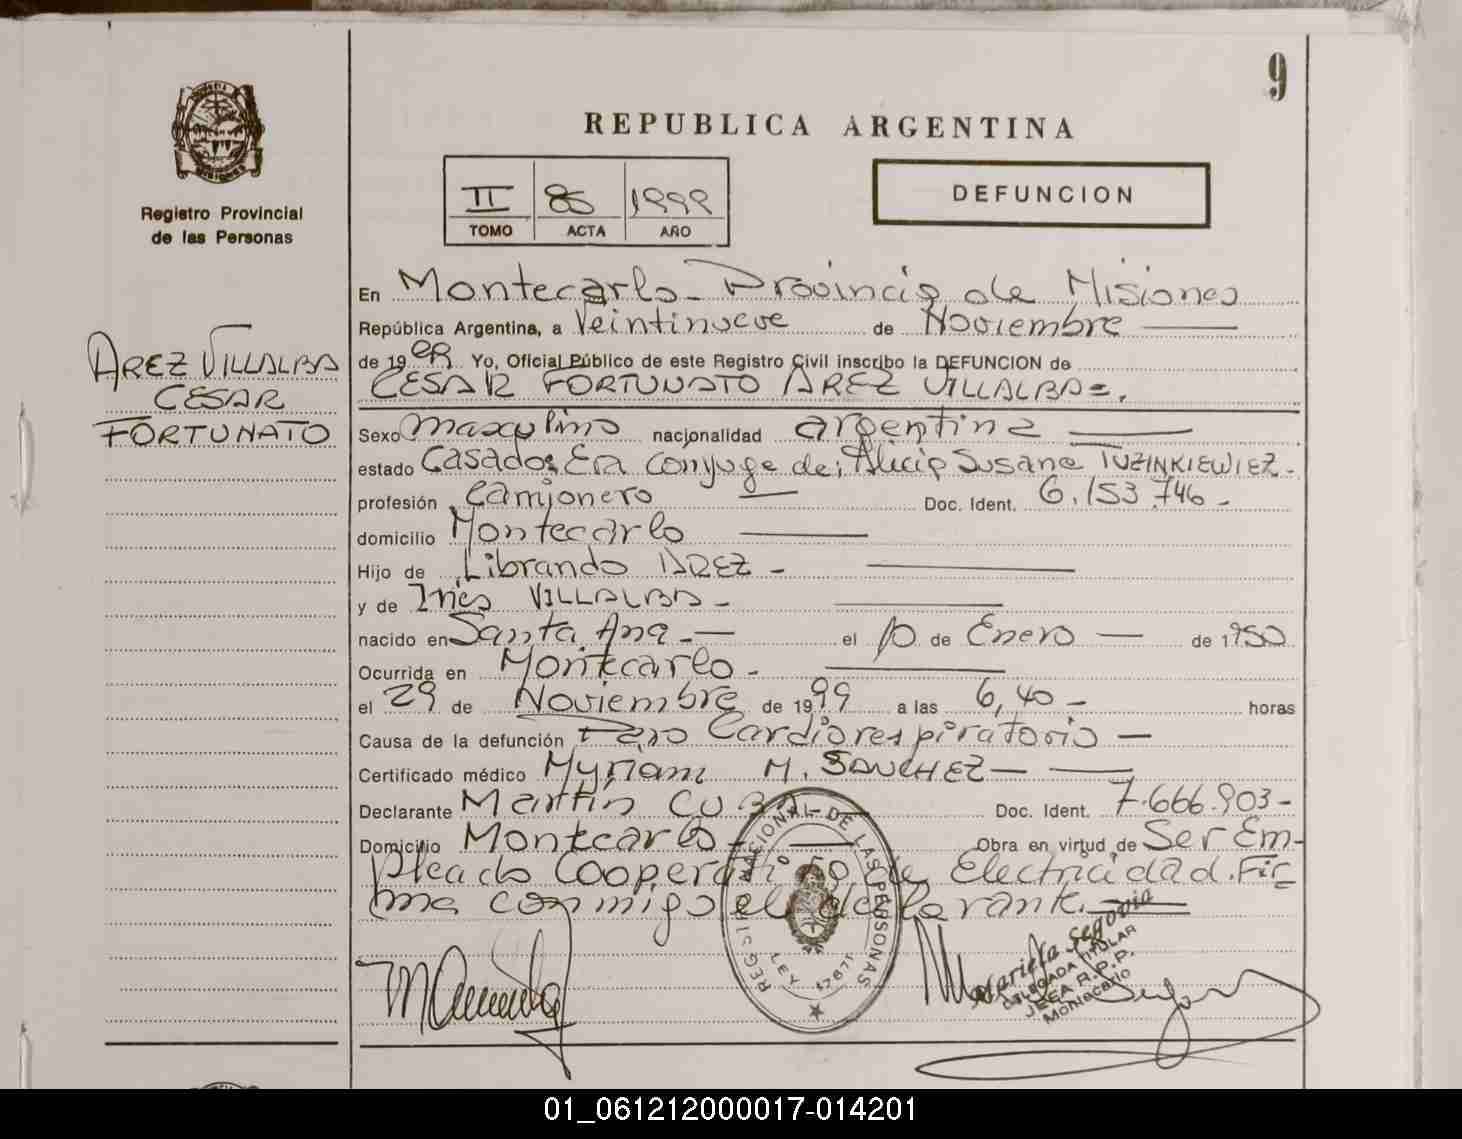 9
REPUBLICA ARGENTINA
Registro Provincial
de las Personas
II 86 1999
TOMO ACTA AÑO
DEFUNCION
AREZ VILLALBA
CESAR
FORTUNATO
En Montecarlo - Provincia de Misiones
República Argentina, a Veintinueve de Noviembre
de 1999 Yo, Oficial Público de este Registro Civil inscribo la DEFUNCION de
CESAR FORTUNATO AREZ VILLALBA=.
Sexo masculino nacionalidad argentina
estado Casado: Era conyuge de; Alicia Susana TUZINKIEWIEZ.-
profesión Camionero Doc. Ident. 6.153.746-
domicilio Montecarlo
Hijo de Librando AREZ -
y de Inés VILLALBA -
nacido en Santa Ana - el 10 de Enero de 1950
Ocurrida en Montecarlo -
el 29 de Noviembre de 1999 a las 6,40 - horas
Causa de la defunción Paro Cardiorespiratorio -
Certificado médico Myriam M. SANCHEZ -
Declarante Martín Doc. Ident. 7.666.903-
Domicilio Montecarlo - Obra en virtud de Ser Em-
pleado Cooperativa de Electricidad. Fir-
ma conmigo el declarante.
REGISTRO NACIONAL DE LAS PERSONAS
LEY 17671
Mariela Segovia
DELEGADA TITULAR
JSEA R.P.P.
Montecarlo
01_061212000017-014201